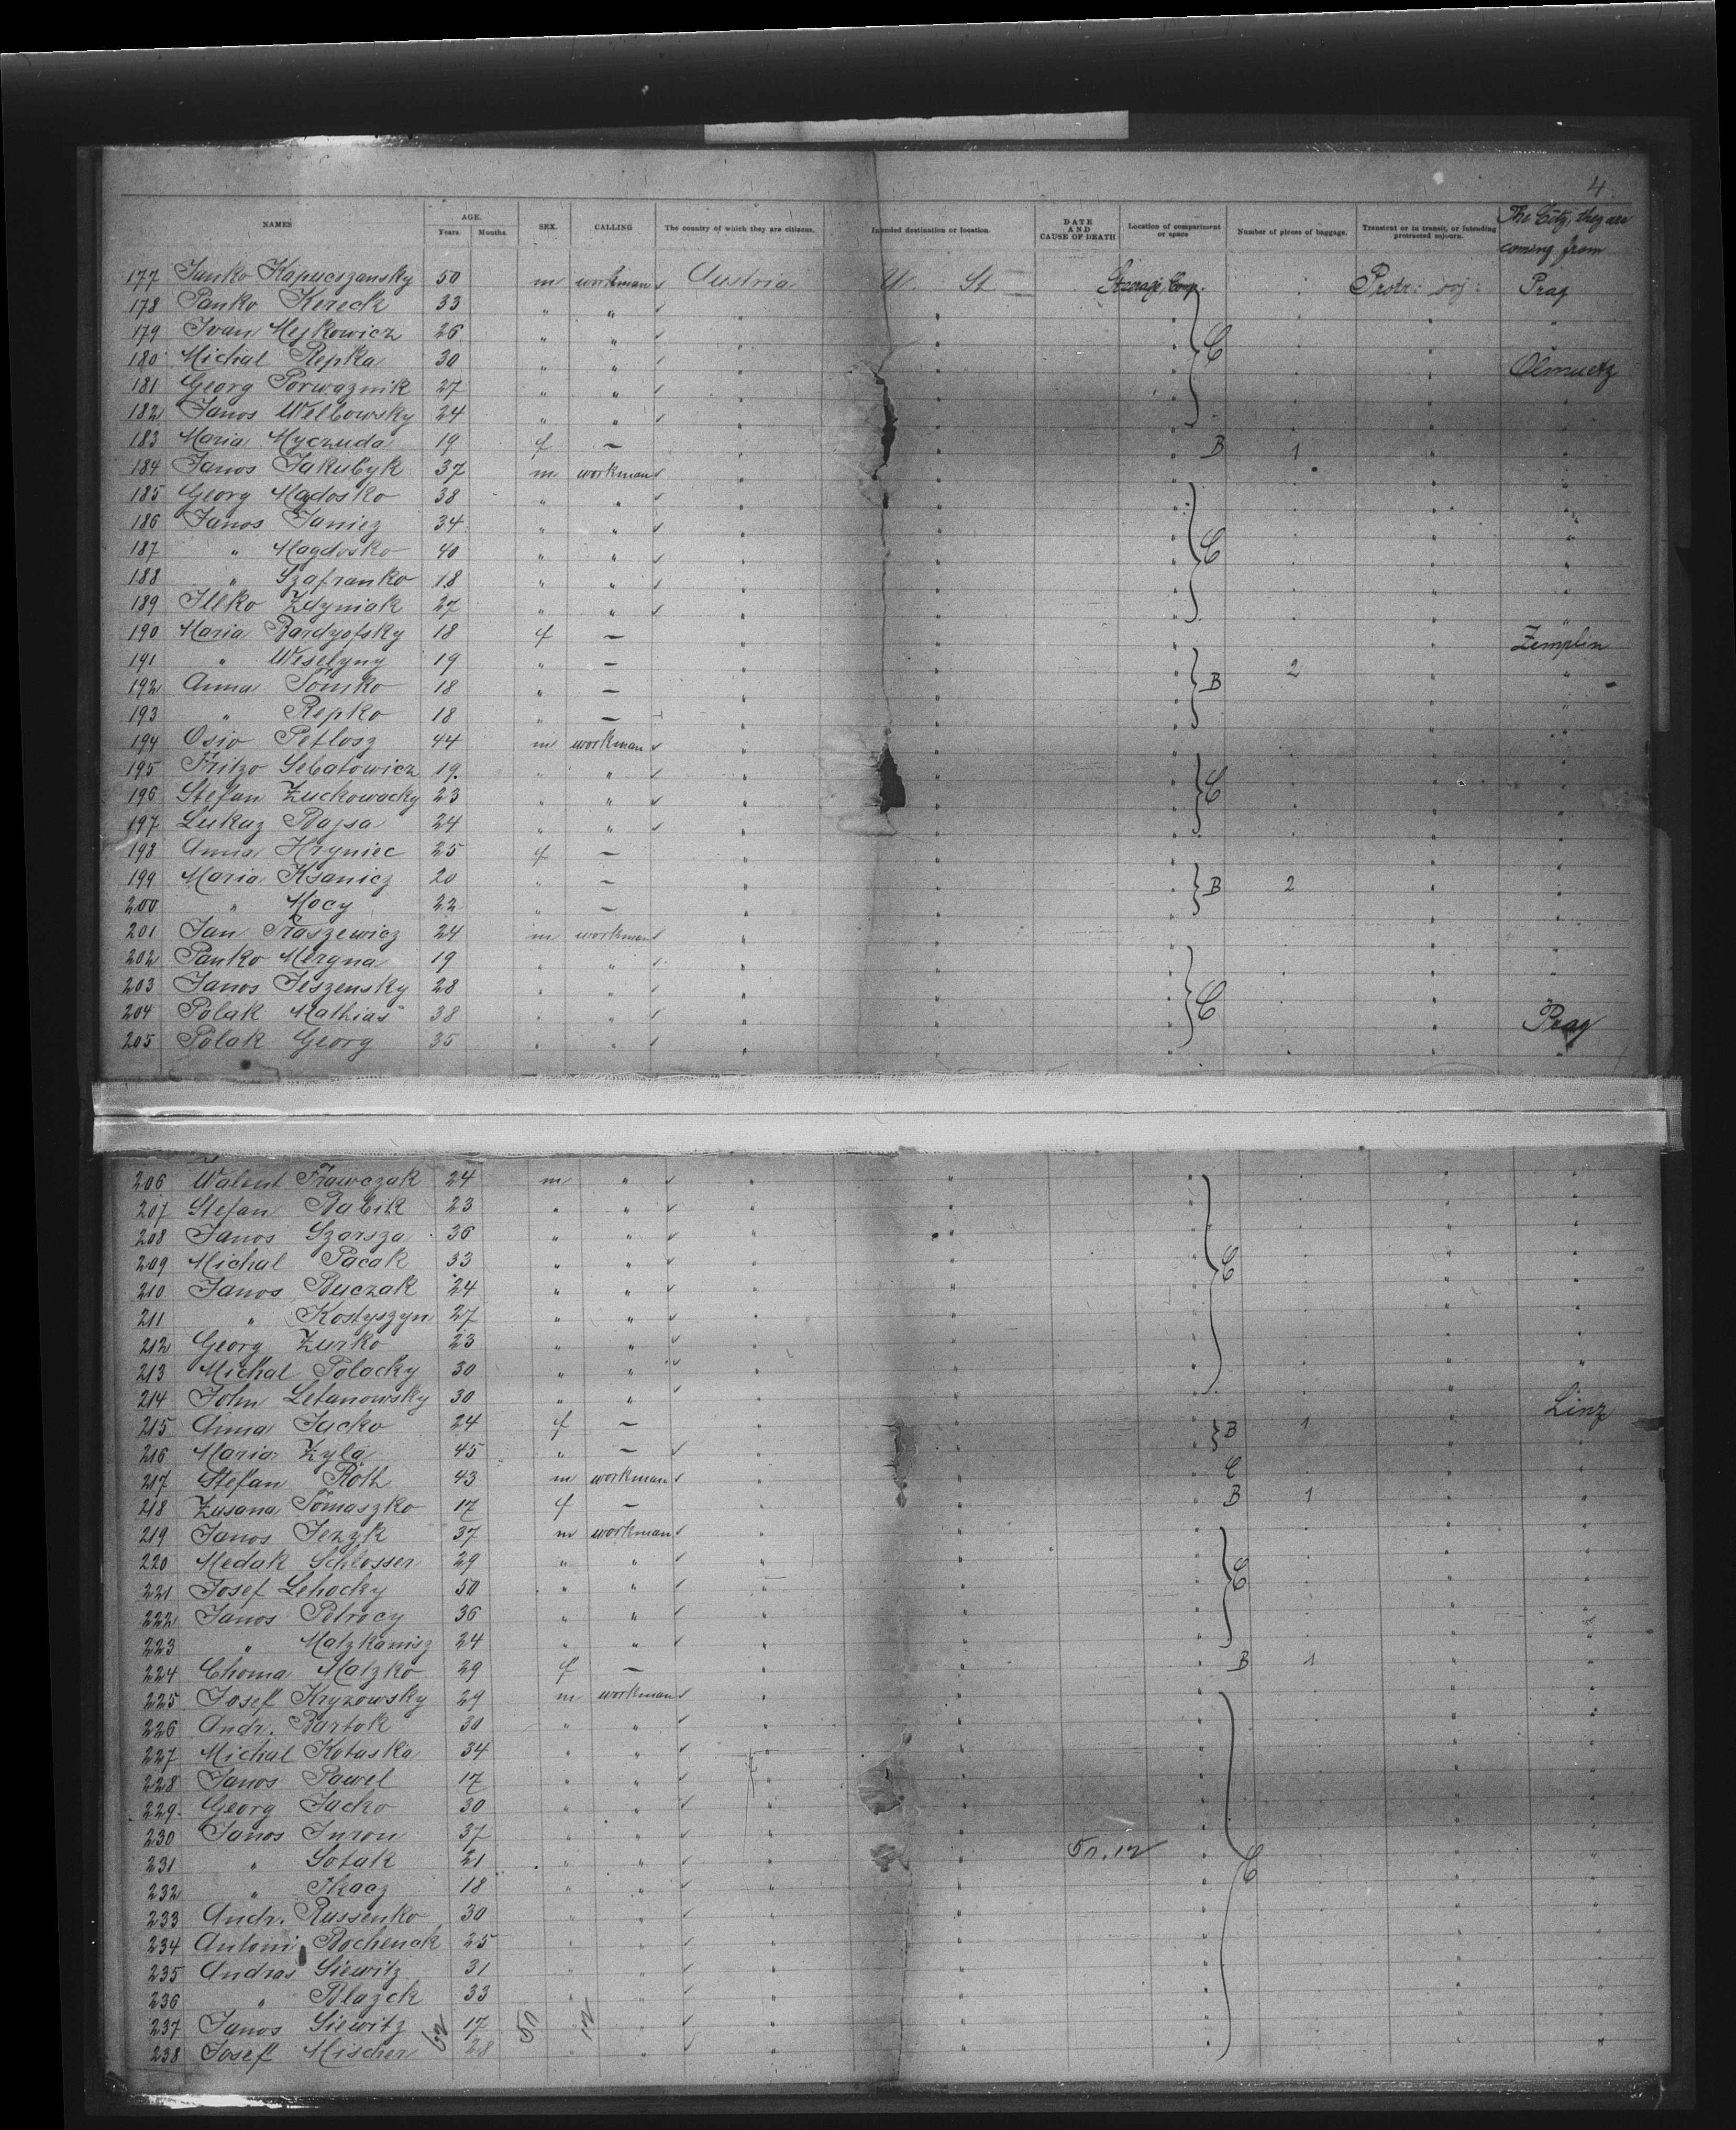 4
NAMES AGE. Years. Months. SEX. CALLING The country of which they are citizens. Intended destination or location. DATE AND CAUSE OF DEATH Location of compartment or space Number of pieces of baggage. Transient or in transit, or intending protracted sojourn. The City, they are coming from
177 Janko Kapucszansky 50 m workman Austria U. St. Steerage, Comp. Protr. soj. Prag
178 Panko Kereck 33 " " "
179 Ivan Mejkowicz 26 " " " C
180 Michal Repka 30 " " " Olmuetz
181 Georg Porwaznik 27 " " "
182 Janos Welbowsky 24 " " "
183 Maria Myczuda 19 f — " B 1
184 Janos Jakubyk 37 m workman "
185 Georg Magdosko 38 " " "
186 Janos Janicz 34 " " "
187 " Magdosko 40 " " " C
188 " Szafranko 18 " " "
189 Ilko Zdyniak 27 " " "
190 Maria Bardyofsky 18 f — " Zemplin
191 " Weselyny 19 " — " 2
192 Anna Tomko 18 " — " B
193 " Repko 18 " — "
194 Osio Petlosz 44 m workman "
195 Fritzo Sebatowicz 19 " " "
196 Stefan Zuckowacky 23 " " " C
197 Lukaz Bajsa 24 " " "
198 Anna Hryniec 25 f — "
199 Maria Ksanicz 20 " — " B 2
200 " Mocy 22 " — "
201 Jan Fraszewicz 24 m workman "
202 Panko Meryna 19 " " "
203 Janos Jeszensky 28 " " "
204 Polak Mathias 38 " " " C Prag
205 Polak Georg 35 " " "
206 Walent Frawczak 24 m " "
207 Stefan Babik 23 " " "
208 Janos Szarsza 36 " " "
209 Michal Pacak 33 " " " C
210 Janos Buczak 24 " " "
211 " Kostyszyn 27 " " "
212 Georg Zurko 23 " " "
213 Michal Polacky 30 " " "
214 John Letanowsky 30 " " " Linz
215 Anna Jacko 24 f — " B 1
216 Maria Zyla 45 " — "
217 Stefan Roth 43 m workman " C
218 Zusana Tomaszko 17 f — " B 1
219 Janos Jezyk 37 m workman "
220 Medak Schlosser 29 " " "
221 Josef Lehocky 50 " " " C
222 Janos Petrocy 36 " " "
223 " Matzkanisz 24 " " "
224 Choma Matzko 29 f — " B 1
225 Josef Kryzowsky 29 m workman "
226 Andr. Bartok 30 " " "
227 Michal Kotaska 34 " " "
228 Janos Pawel 17 " " "
229 Georg Jacko 30 " " "
230 Janos Juron 37 " " " 50.12
231 " Sotak 21 " " " C
232 " Tkacz 18 " " "
233 Andr. Russenko 30 " " "
234 Antoni Bochenak 25 " " "
235 Andras Siewitz 31 " " "
236 " Blazck 33 " " "
237 Janos Siewitz 17 " " "
62 50 12
238 Josef Mischer 28 " " "